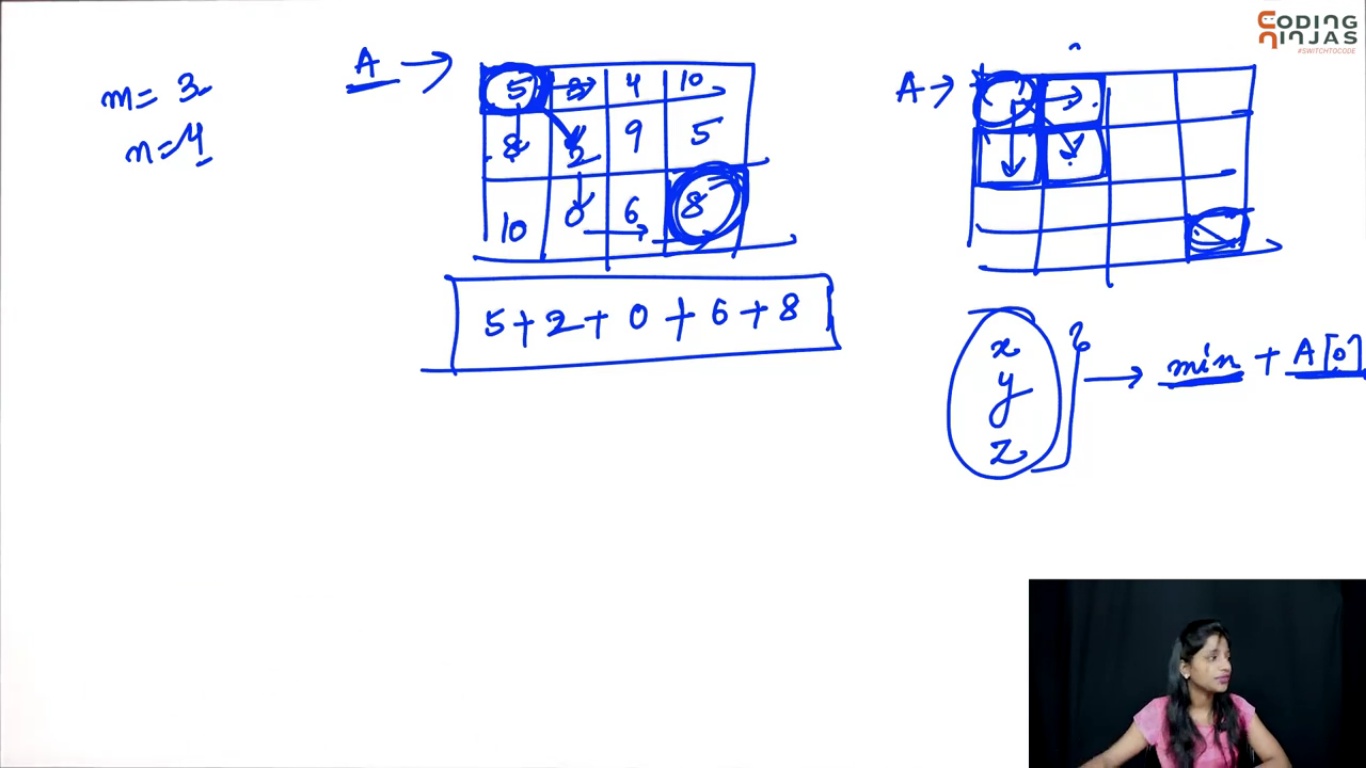 CODING
NINJAS
#SWITCHTOCODE
m = 3
n = 4
A →
5 4 10
8 2 9 5
10 0 6 8
5 + 2 + 0 + 6 + 8
A →
x
y
z
→ min + A[0]